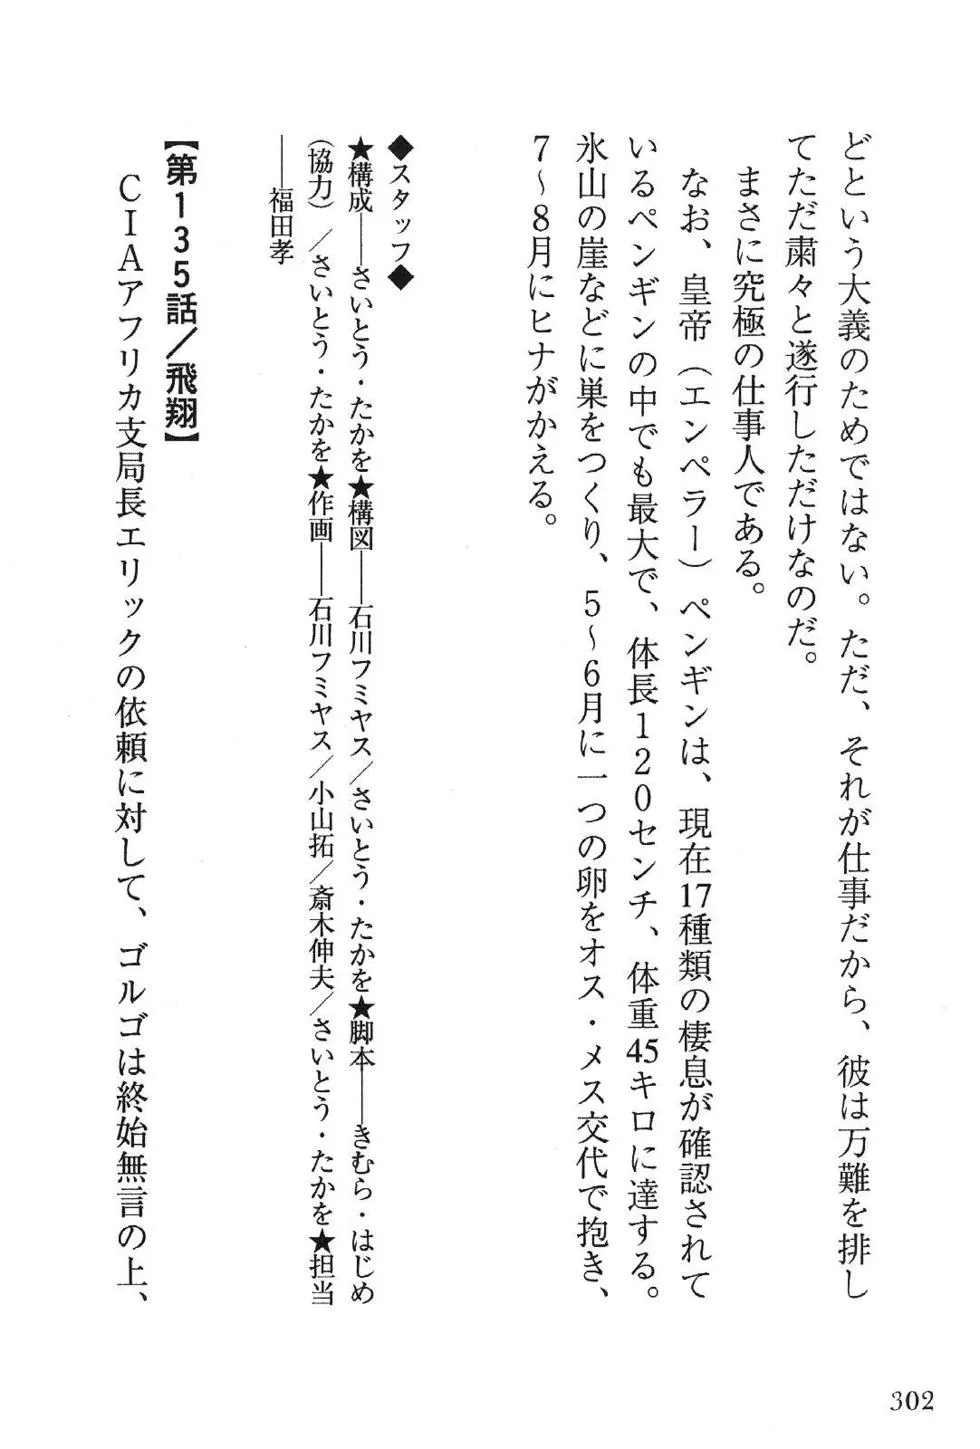 どという大義のためではない。ただ、それが仕事だから、彼は万難を排し
てただ粛々と遂行しただけなのだ。
まさに究極の仕事人である。
なお、皇帝（エンペラー）ペンギンは、現在17種類の棲息が確認されて
いるペンギンの中でも最大で、体長120センチ、体重45キロに達する。
氷山の崖などに巣をつくり、5〜6月に一つの卵をオス・メス交代で抱き、
7〜8月にヒナがかえる。
◆スタッフ◆
★構成――さいとう・たかを★構図――石川フミヤス/さいとう・たかを★脚本――きむら・はじめ
（協力）/さいとう・たかを★作画――石川フミヤス/小山拓/斎木伸夫/さいとう・たかを★担当
――福田孝
【第135話/飛翔】
CIAアフリカ支局長エリックの依頼に対して、ゴルゴは終始無言の上、
302